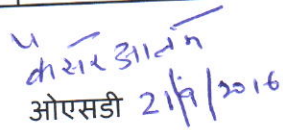 कैसर आलम
ओएसडी 21/9/2016